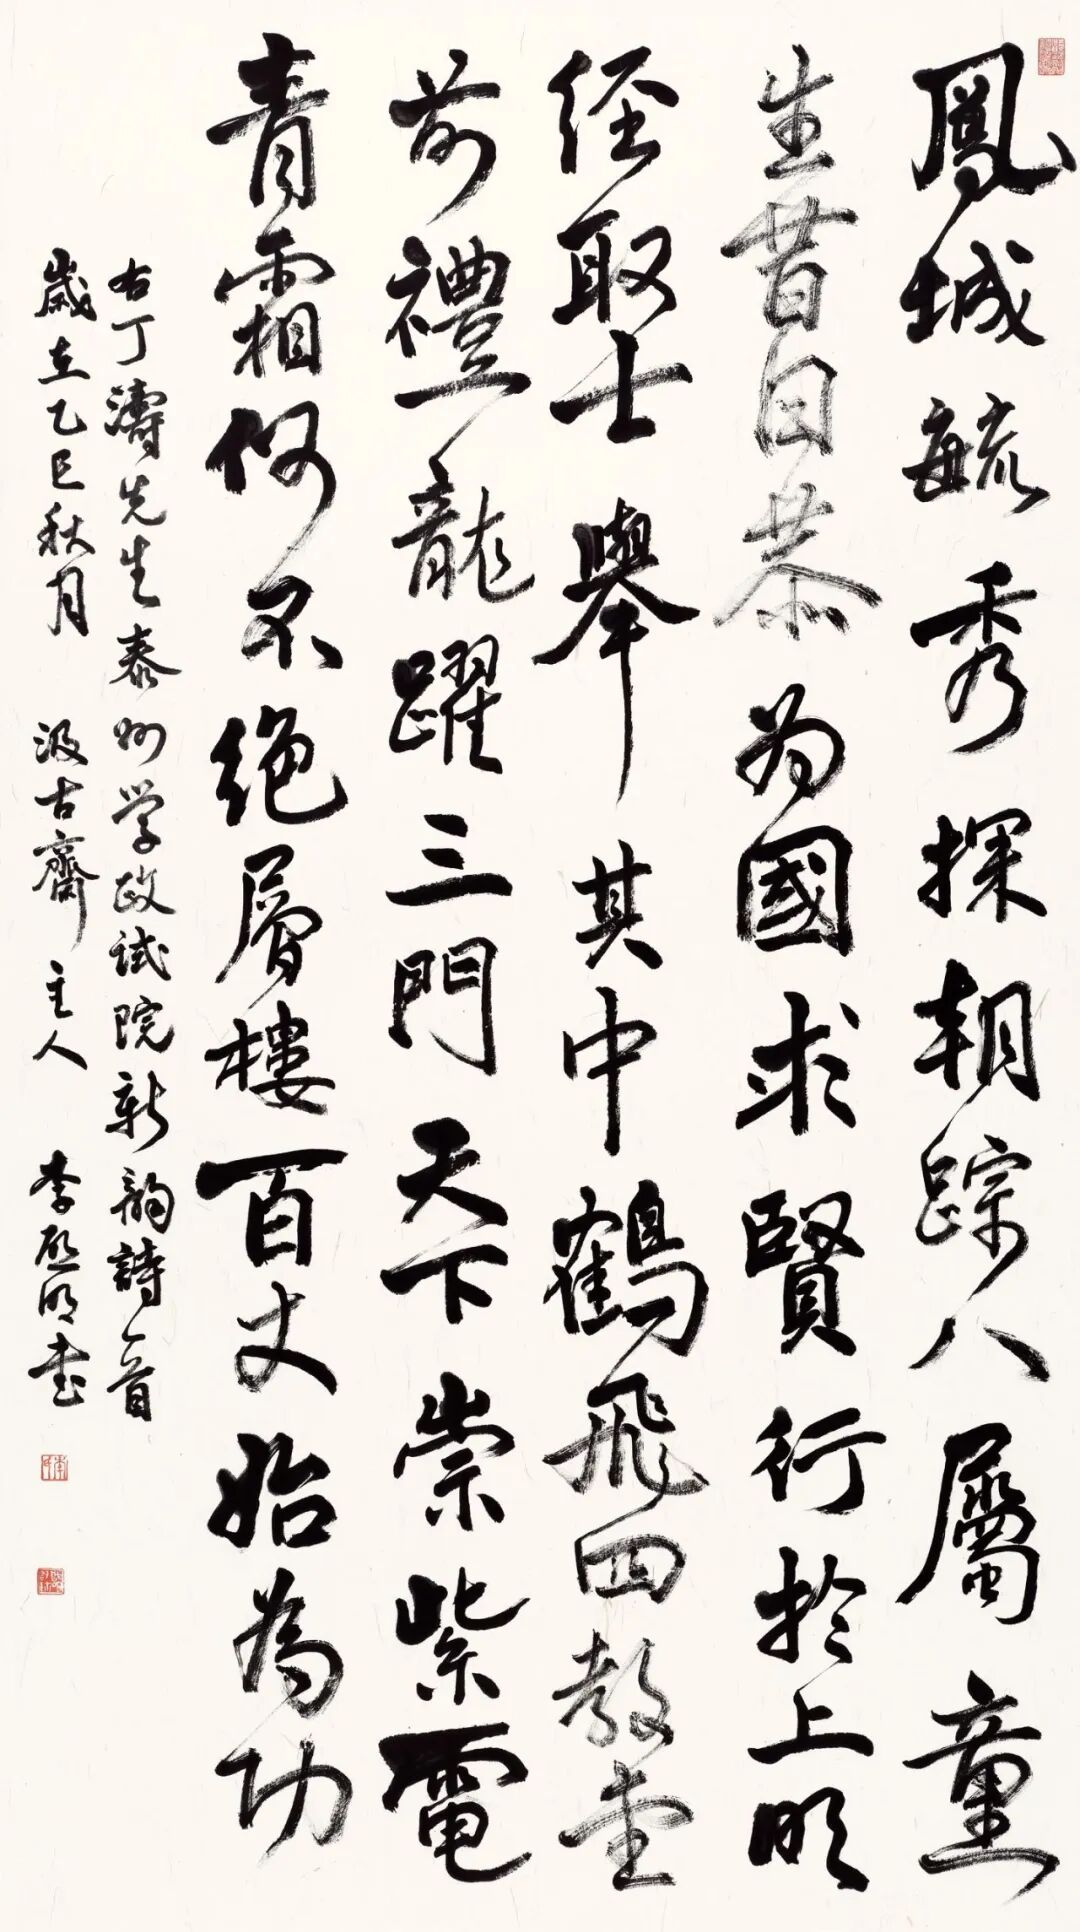 鳳城毓秀探朝踪人屬童
生昔日恭为國求賢行於上明
经取士舉其中鶴飛四教堂
前禮龍躍三門天下崇紫電
青霜何不绝層樓百丈始為功
右丁濤先生泰州学政试院新韵詩一首
歲在乙巳秋月 汲古齋主人 李啟明书